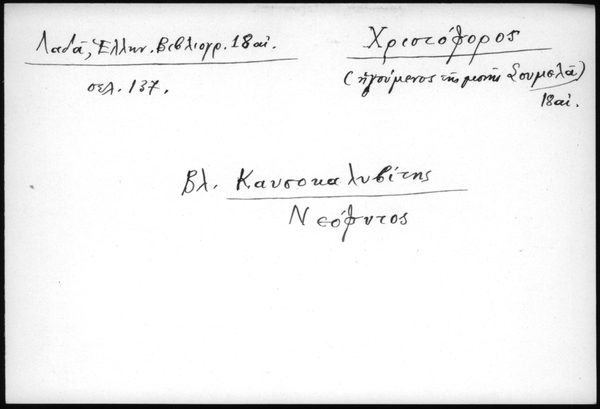 Λαδά, Ἑλλην. Βιβλιογρ. 18 αἰ.
σελ. 137.
Χριστόφορος
(ἡγούμενος τῆς μονῆς Σουμελᾶ)
18 αἰ.
Βλ. Καυσοκαλυβίτης
Νεόφυτος